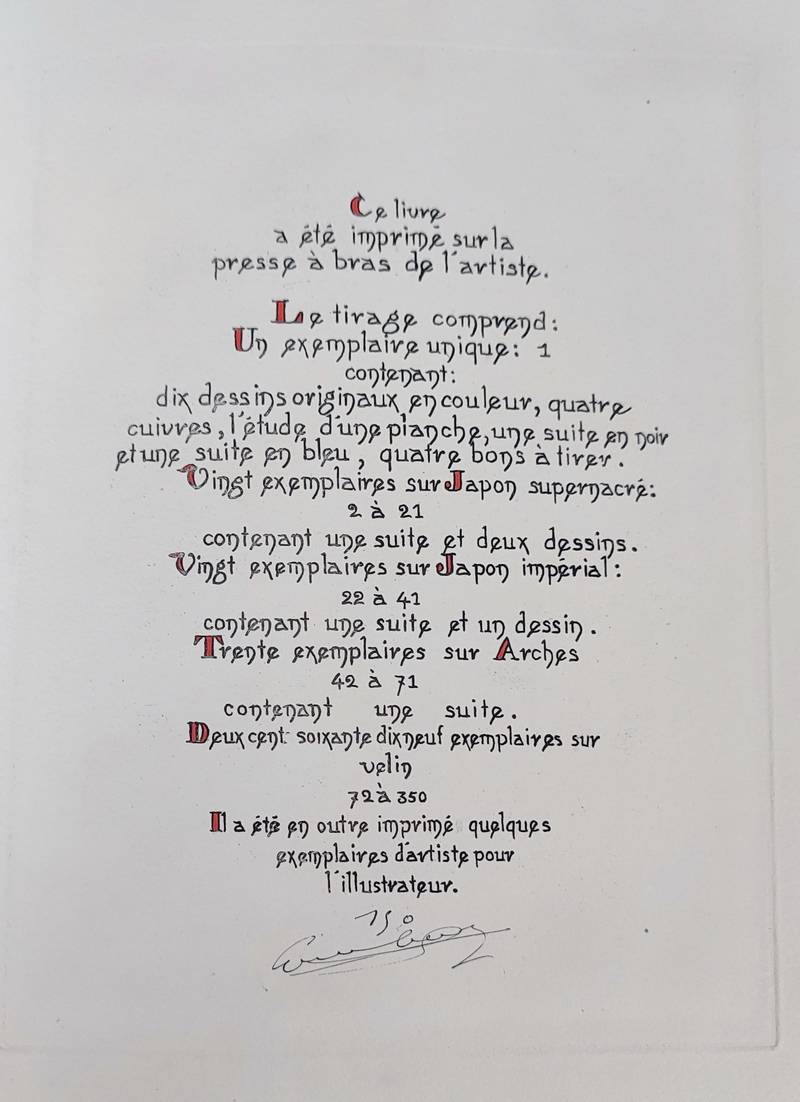 Ce livre
a été imprimé sur la
presse à bras de l'artiste.
Le tirage comprend:
Un exemplaire unique: 1
contenant:
dix dessins originaux en couleur, quatre
cuivres, l'étude d'une planche, une suite en noir
et une suite en bleu, quatre bons à tirer.
Vingt exemplaires sur Japon supernacré:
2 à 21
contenant une suite et deux dessins.
Vingt exemplaires sur Japon impérial:
22 à 41
contenant une suite et un dessin.
Trente exemplaires sur Arches
42 à 71
contenant une suite.
Deux cent soixante dix neuf exemplaires sur
velin
72 à 350
Il a été en outre imprimé quelques
exemplaires d'artiste pour
l'illustrateur.
150